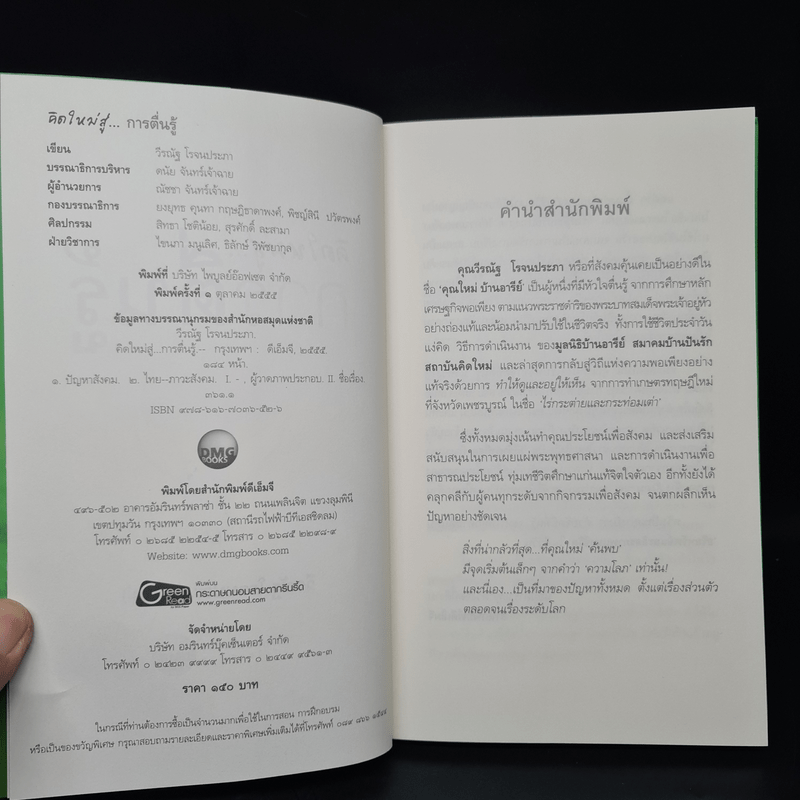 คิดใหม่สู่... การตื่นรู้
เขียน วีรณัฐ โรจนประภา
บรรณาธิการบริหาร ดนัย จันทร์เจ้าฉาย
ผู้อำนวยการ ณัชชา จันทร์เจ้าฉาย
กองบรรณาธิการ ยงยุทธ คุนทา กฤษฎิธาดาพงศ์, พิชญ์สินี ปวัตรพงศ์
ศิลปกรรม สิทธา โชติน้อย, สุรศักดิ์ ละสามา
ฝ่ายวิชาการ ไชนภา มนูเลิศ, ธิลักษ์ วิพัชยากุล
พิมพ์ที่ บริษัท ไพบูลย์อ๊อฟเซต จำกัด
พิมพ์ครั้งที่ ๑ ตุลาคม ๒๕๕๕
ข้อมูลทางบรรณานุกรมของสำนักหอสมุดแห่งชาติ
วีรณัฐ โรจนประภา.
คิดใหม่สู่...การตื่นรู้.-- กรุงเทพฯ : ดีเอ็มจี, ๒๕๕๕.
๑๘๔ หน้า.
๑. ปัญหาสังคม. ๒. ไทย--ภาวะสังคม. I. - , ผู้วาดภาพประกอบ. II. ชื่อเรื่อง.
๓๖๑.๑
ISBN ๙๗๘-๖๑๖-๗๐๓๖-๕๒-๖
DMG
BOOKS
พิมพ์โดยสำนักพิมพ์ดีเอ็มจี
๔๙๖-๕๐๒ อาคารอัมรินทร์พลาซ่า ชั้น ๒๒ ถนนเพลินจิต แขวงลุมพินี
เขตปทุมวัน กรุงเทพฯ ๑๐๓๓๐ (สถานีรถไฟฟ้าบีทีเอสชิดลม)
โทรศัพท์ ๐ ๒๖๘๕ ๒๒๕๔-๕ โทรสาร ๐ ๒๖๘๕ ๒๒๙๘-๙
Website: www.dmgbooks.com
Green
Read
พิมพ์บน
กระดาษถนอมสายตากรีนรี้ด
www.greenread.com
จัดจำหน่ายโดย
บริษัท อมรินทร์บุ๊คเซ็นเตอร์ จำกัด
โทรศัพท์ ๐ ๒๔๒๓ ๙๙๙๙ โทรสาร ๐ ๒๔๔๙ ๙๕๖๑-๓
ราคา ๑๕๐ บาท
ในกรณีที่ท่านต้องการซื้อเป็นจำนวนมากเพื่อใช้ในการสอน การฝึกอบรม
หรือเป็นของขวัญพิเศษ กรุณาสอบถามรายละเอียดและราคาพิเศษเพิ่มเติมได้ที่โทรศัพท์ ๐๘๙ ๘๖๖
คำนำสำนักพิมพ์
คุณวีรณัฐ โรจนประภา หรือที่สังคมคุ้นเคยเป็นอย่างดีใน
ชื่อ ‘คุณใหม่ บ้านอารีย์’ เป็นผู้หนึ่งที่มีหัวใจตื่นรู้ จากการศึกษาหลัก
เศรษฐกิจพอเพียง ตามแนวพระราชดำริของพระบาทสมเด็จพระเจ้าอยู่หัว
อย่างถ่องแท้และน้อมนำมาปรับใช้ในชีวิตจริง ทั้งการใช้ชีวิตประจำวัน
แง่คิด วิธีการดำเนินงาน ของมูลนิธิบ้านอารีย์ สมาคมบ้านปันรัก
สถาบันคิดใหม่ และล่าสุดการกลับสู่วิถีแห่งความพอเพียงอย่าง
แท้จริงด้วยการ ทำให้ดูและอยู่ให้เห็น จากการทำเกษตรทฤษฎีใหม่
ที่จังหวัดเพชรบูรณ์ ในชื่อ ‘ไร่กระต่ายและกระท่อมเต่า’
ซึ่งทั้งหมดมุ่งเน้นทำคุณประโยชน์เพื่อสังคม และส่งเสริม
สนับสนุนในการเผยแผ่พระพุทธศาสนา และการดำเนินงานเพื่อ
สาธารณประโยชน์ ทุ่มเทชีวิตศึกษาแก่นแท้จิตใจตัวเอง อีกทั้งยังได้
คลุกคลีกับผู้คนทุกระดับจากกิจกรรมเพื่อสังคม จนตกผลึกเห็น
ปัญหาอย่างชัดเจน
สิ่งที่น่ากลัวที่สุด...ที่คุณใหม่ ‘ค้นพบ’
มีจุดเริ่มต้นเล็กๆ จากคำว่า ‘ความโลภ’ เท่านั้น!
และนี่เอง...เป็นที่มาของปัญหาทั้งหมด ตั้งแต่เรื่องส่วนตัว
ตลอดจนเรื่องระดับโลก